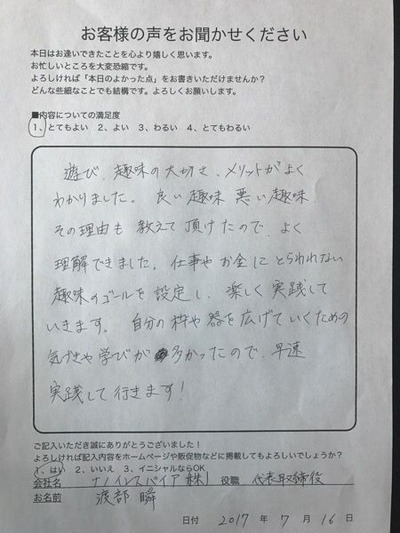 お客様の声をお聞かせください
本日はお逢いできたことを心より嬉しく思います。
お忙しいところを大変恐縮です。
よろしければ「本日のよかった点」をお書きいただけませんか?
どんな些細なことでも結構です。よろしくお願いします。
■内容についての満足度
1、とてもよい 2、よい 3、わるい 4、とてもわるい
遊び、趣味の大切さ、メリットがよく
わかりました。良い趣味 悪い趣味
その理由も教えて頂けたので、よく
理解できました。仕事やお金にとらわれない
趣味のゴールを設定し、楽しく実践して
いきます。自分の枠や器を広げていくための
気づきや学びが多かったので、早速
実践して行きます!
ご記入いただき誠にありがとうございました!
よろしければ記入内容をホームページや販促物などに掲載してもよろしいでしょうか?
1、はい 2、いいえ 3、イニシャルならOK
会社名 ナノインスパイア(株) 役職 代表取締役
お名前 渡部 瞬
日付 2017 年 7 月 16 日